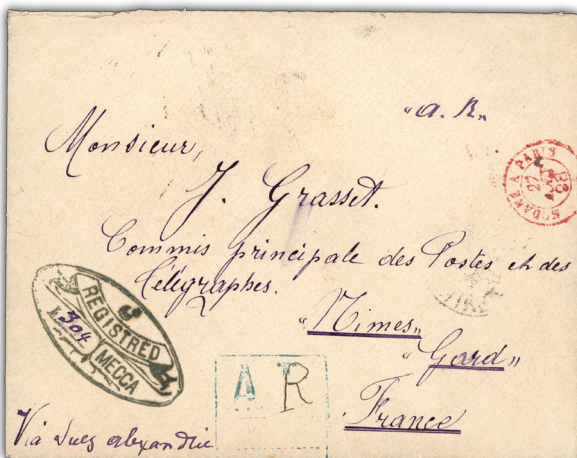 "A. R."
Monsieur,
J. Grasset.
Commis principale des Postes et des
Télégraphes.
"Nimes"
"Gard"
France
REGISTRED
304
MECCA
A R
Via Suez alexandrie
MODANE A PARIS
27
93